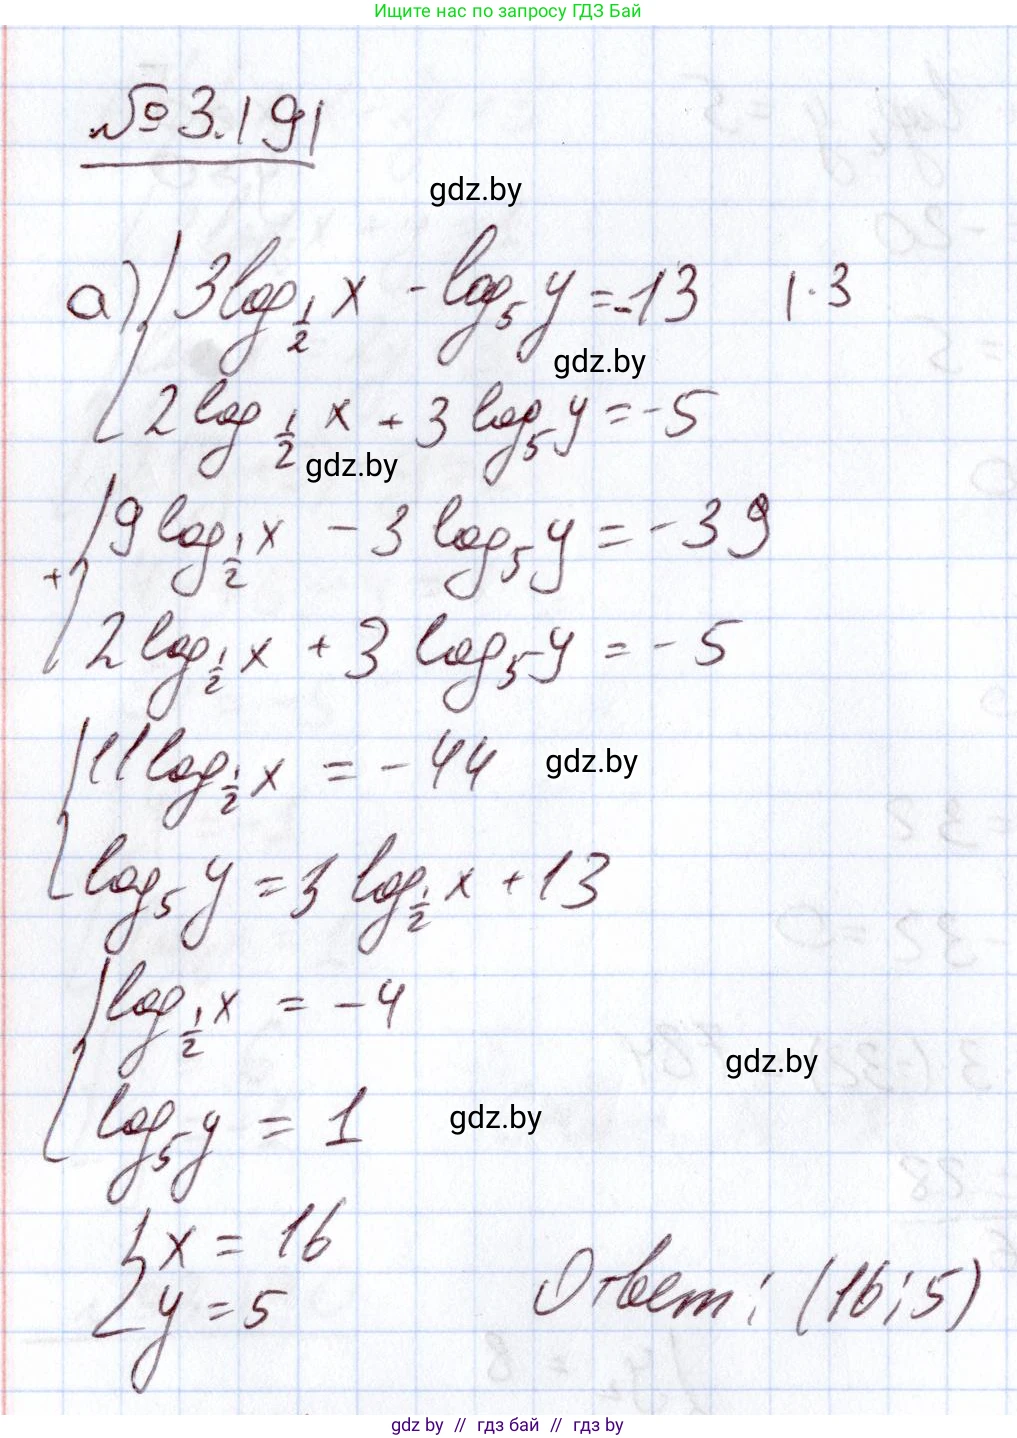 Ищите нас по запросу ГДЗ Бай
№ 3.191
gdz.by
а) { 3log_{1/2} x - log_5 y = -13 | · 3
gdz.by
2 log_{1/2} x + 3 log_5 y = -5
gdz.by
+ { 9 log_{1/2} x - 3 log_5 y = -39
2 log_{1/2} x + 3 log_5 y = -5
{ 11 log_{1/2} x = -44
gdz.by
log_5 y = 3 log_{1/2} x + 13
{ log_{1/2} x = -4
gdz.by
log_5 y = 1
gdz.by
{ x = 16
y = 5
Ответ: (16; 5)
gdz by // гдз бай // gdz by